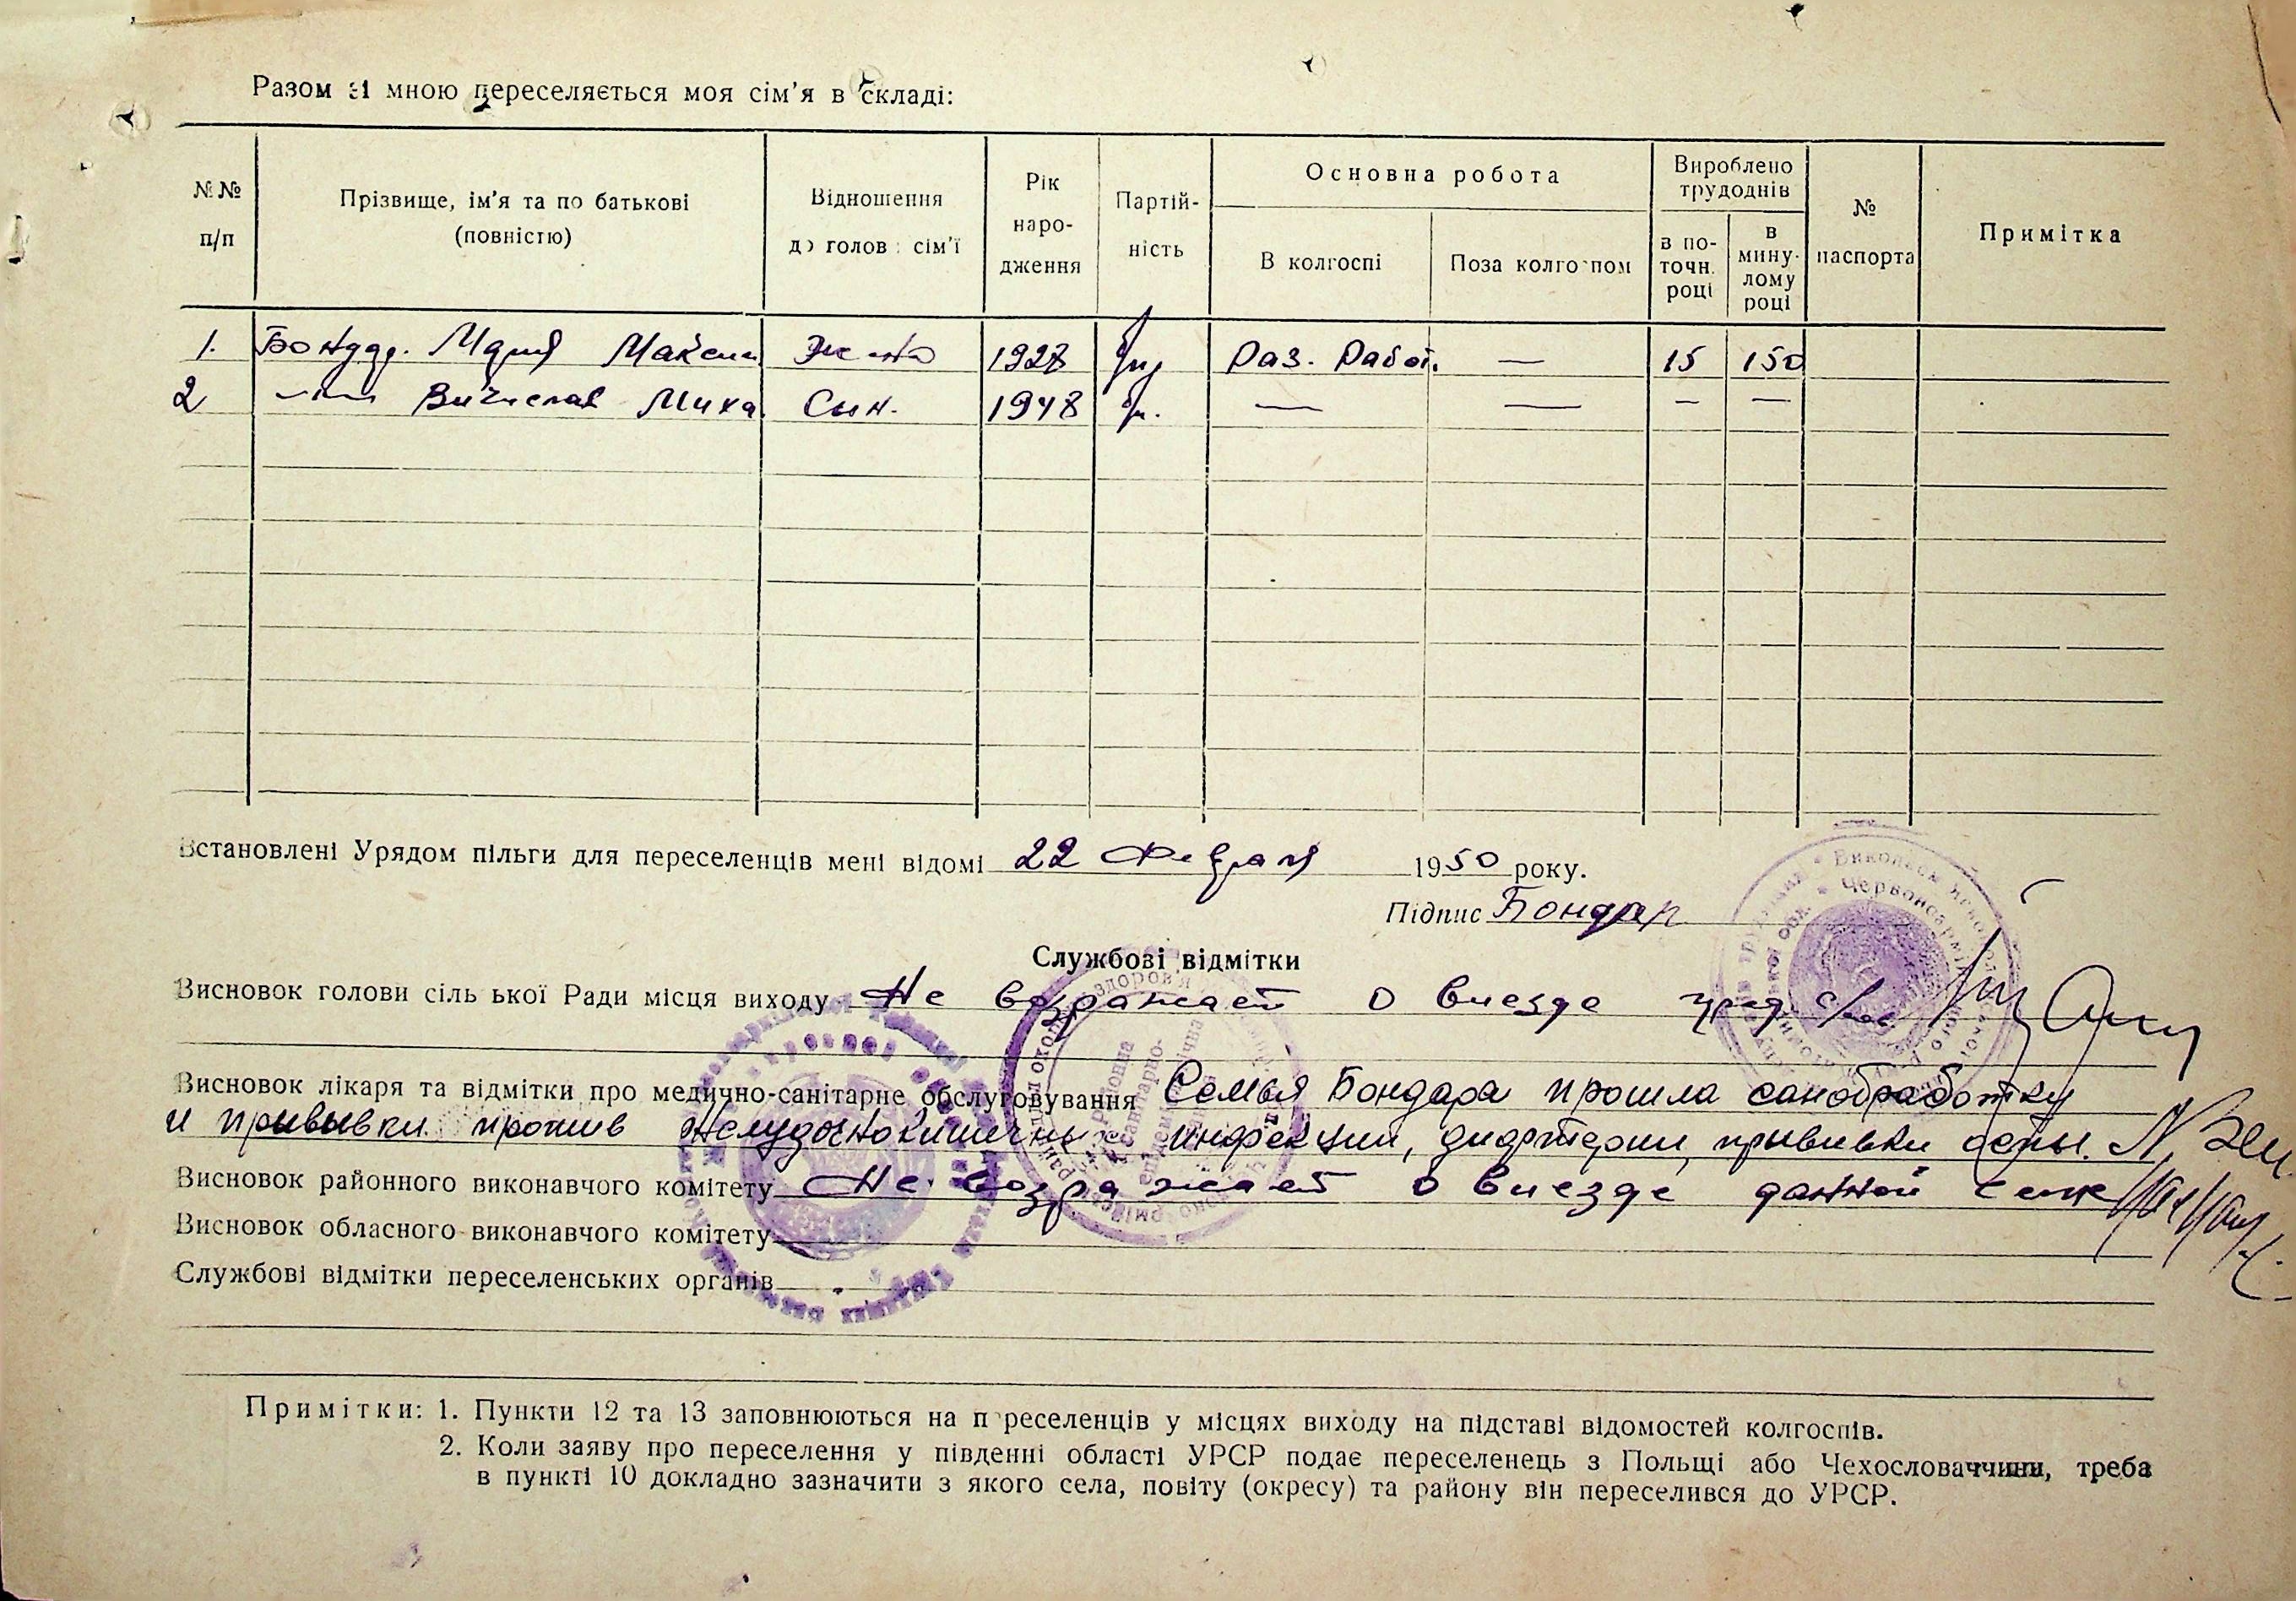 Разом зі мною переселяється моя сім'я в складі:
№№ п/п
Прізвище, ім'я та по батькові (повністю)
Відношення до голов сім'ї
Рік народження
Партійність
Основна робота
В колгоспі
Поза колгоспом
Вироблено трудоднів
в поточн. році
в минулому році
№ паспорта
Примітка
1. Бондар. Мария Максим Жена 1928 Раз. Работ. — 15 150
2 Вячеслав Миха Сын. 1948 — — — —
Встановлені Урядом пільги для переселенців мені відомі 22 Февраля 1950 року.
Підпис Бондар
Службові відмітки
Висновок голови сіль ької Ради місця виходу Не возражает о виезде пред с/
Висновок лікаря та відмітки про медично-санітарне обслуговування Семья Бондара прошла санобработку
и прививки против желудочнокишечных инфекции, дифтерии, прививки оспы.
Висновок районного виконавчого комітету Не возражает о виезде данной семе
Висновок обласного виконавчого комітету
Службові відмітки переселенських органів
Примітки: 1. Пункти 12 та 13 заповнюються на п реселенців у місцях виходу на підставі відомостей колгоспів.
2. Коли заяву про переселення у південні області УРСР подає переселенець з Польщі або Чехословаччини, треба
в пункті 10 докладно зазначити з якого села, повіту (окресу) та району він переселився до УРСР.